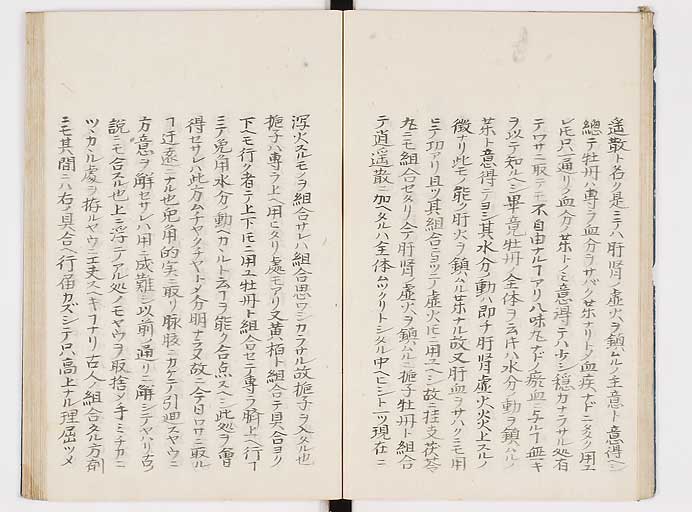 遥散ト名ク是ニテハ肝腎ノ虚火ヲ鎮ムルノ主意ト意得ヘシ
總テ牡丹ハ専ラ血分ヲサバク薬ナリトメ血疾ナドニ多ク用ユ
レ𪜈只一通リノ血分ノ薬トノミ意得テハ少シ穏カナラサル処有
テワサニ取テ不自由ナルヿアリ八味丸ナドノ瘀血ニ与ルヿ無キ
ヲ以テ知ルヘシ畢竟牡丹ノ全体ヲ云ヘハ水分ノ動ヲ鎮ムルノ
薬ト意得テヨシ其水分ノ動ハ即チ肝腎ノ虚火炎上スルノ
徴ナリ此モノ能ク肝火ヲ鎮ムル薬ナル故又肝血ヲサハクニモ用
ヒテ功アリ且ツ其組合ニヨツテ虚火𪜈ニ用ユヘシ故ニ桂支茯苓
丸ニモ組合セタリ今肝腎ノ虚火ヲ鎮ムルニ梔子牡丹ト組合
テ逍遥散ニ加ヘタルハ全体ムツクリトシタル中ヘヒシト一ツ現在ニ
瀉火スルモノヲ組合サレハ組合思ワシカラサル故梔子ヲ入タル也
梔子ハ専ラ上ヘ用ヒタリ処モアリ又黄柏ト組合テ具合ヨク
下ヘモ行ク者ニテ上下𪜈ニ用ユ牡丹ト組合セテ専ラ臍上ヘ行ヿ
ニテ兎角水分ノ動ヘカヽルト云ヿヲ能ク合点スヘシ此処ヲ會
得セサレハ此方ムチヤクチヤトメ分明ナラヌ故ニ今日ワサニ取ル
ヿ迂遠ニナル也兎角的実ニ取リ脉腹ニカケテ引廻スヤウニ
方意ヲ解セサレハ用ヲ成難シ以前ノ通リニ解シテヤハリ古
説ニモ合スル也上ニ浮テアル処ノモヤウヲ取捨メ手ミチカニ
ツヽカル處ヲ拵ルヤウニ工夫スヘキヿナリ古人ノ組合タル方劑
ニモ其間ニハ右ノ具合ヘ行届カズシテ只高上ナル理屈ツメ